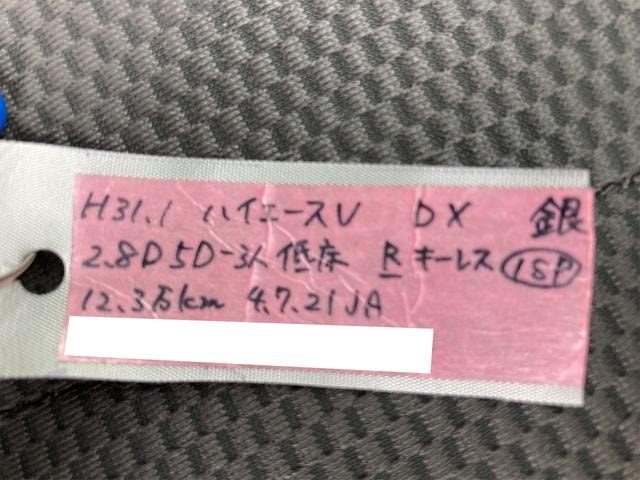 H31.1 ハイエースV DX 銀
2.8D 5D-3人 低床 R キーレス 1SP
12.3万km 4.7.21 JA